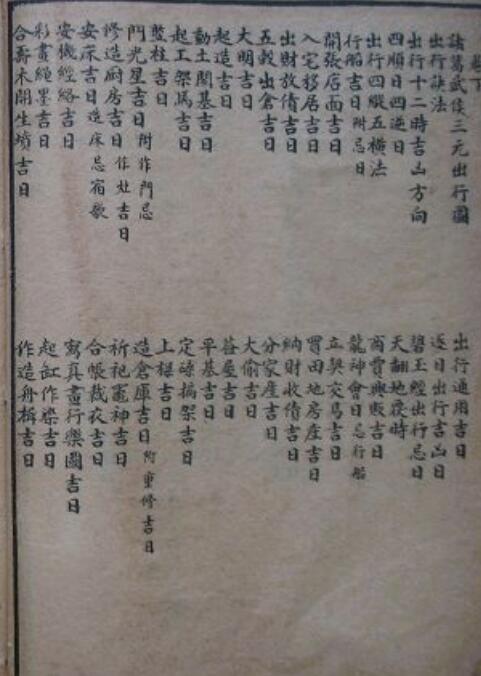 卷下
諸葛武侯三元出行圖
出行訣法
出行十二時吉凶方向
四順日四逆日
出行四縱五橫法
行船吉日附忌日
開張店面吉日
入宅移居吉日
出財放債吉日
五穀出倉吉日
大明吉日
起造吉日
動土開基吉日
起工架馬吉日
竪柱吉日
門光星吉日附作門忌
修造廚房吉日作灶吉日
安床吉日造床忌宿歌
安機經絡吉日
彩畫繩墨吉日
合壽木開生墳吉日
出行通用吉日
逐日出行吉凶日
碧玉經出行忌日
天翻地覆時
商賈興販吉日
龍神會日忌行船
立契交易吉日
買田地房産吉日
納財收債吉日
分家産吉日
大偷吉日
蓋屋吉日
平基吉日
定磉搧架吉日
上樑吉日
造倉庫吉日附重修吉日
祈祀竈神吉日
合帳裁衣吉日
寫真畫行樂圖吉日
起缸作染吉日
作造舟楫吉日